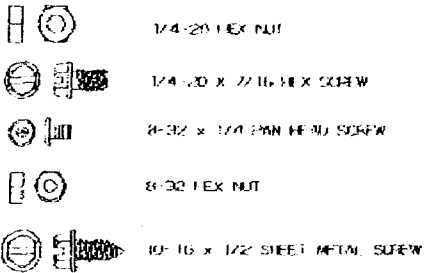 1/4-20 HEX NUT
1/4-20 x 7/16 HEX SCREW
8-32 x 1/4 PAN HEAD SCREW
8-32 HEX NUT
10-16 x 1/2 SHEET METAL SCREW